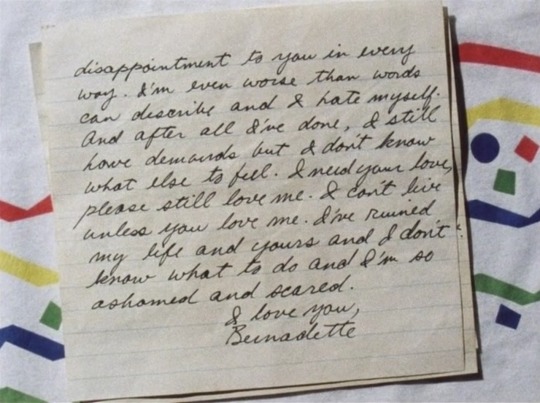 disappointment to you in every
way. I'm even worse than words
can describe and I hate myself.
And after all I've done, I still
have demands but I don't know
what else to feel. I need your love,
please still love me. I can't live
unless you love me. I've ruined
my life and yours and I don't
know what to do and I'm so
ashamed and scared.
I love you,
Bernadette